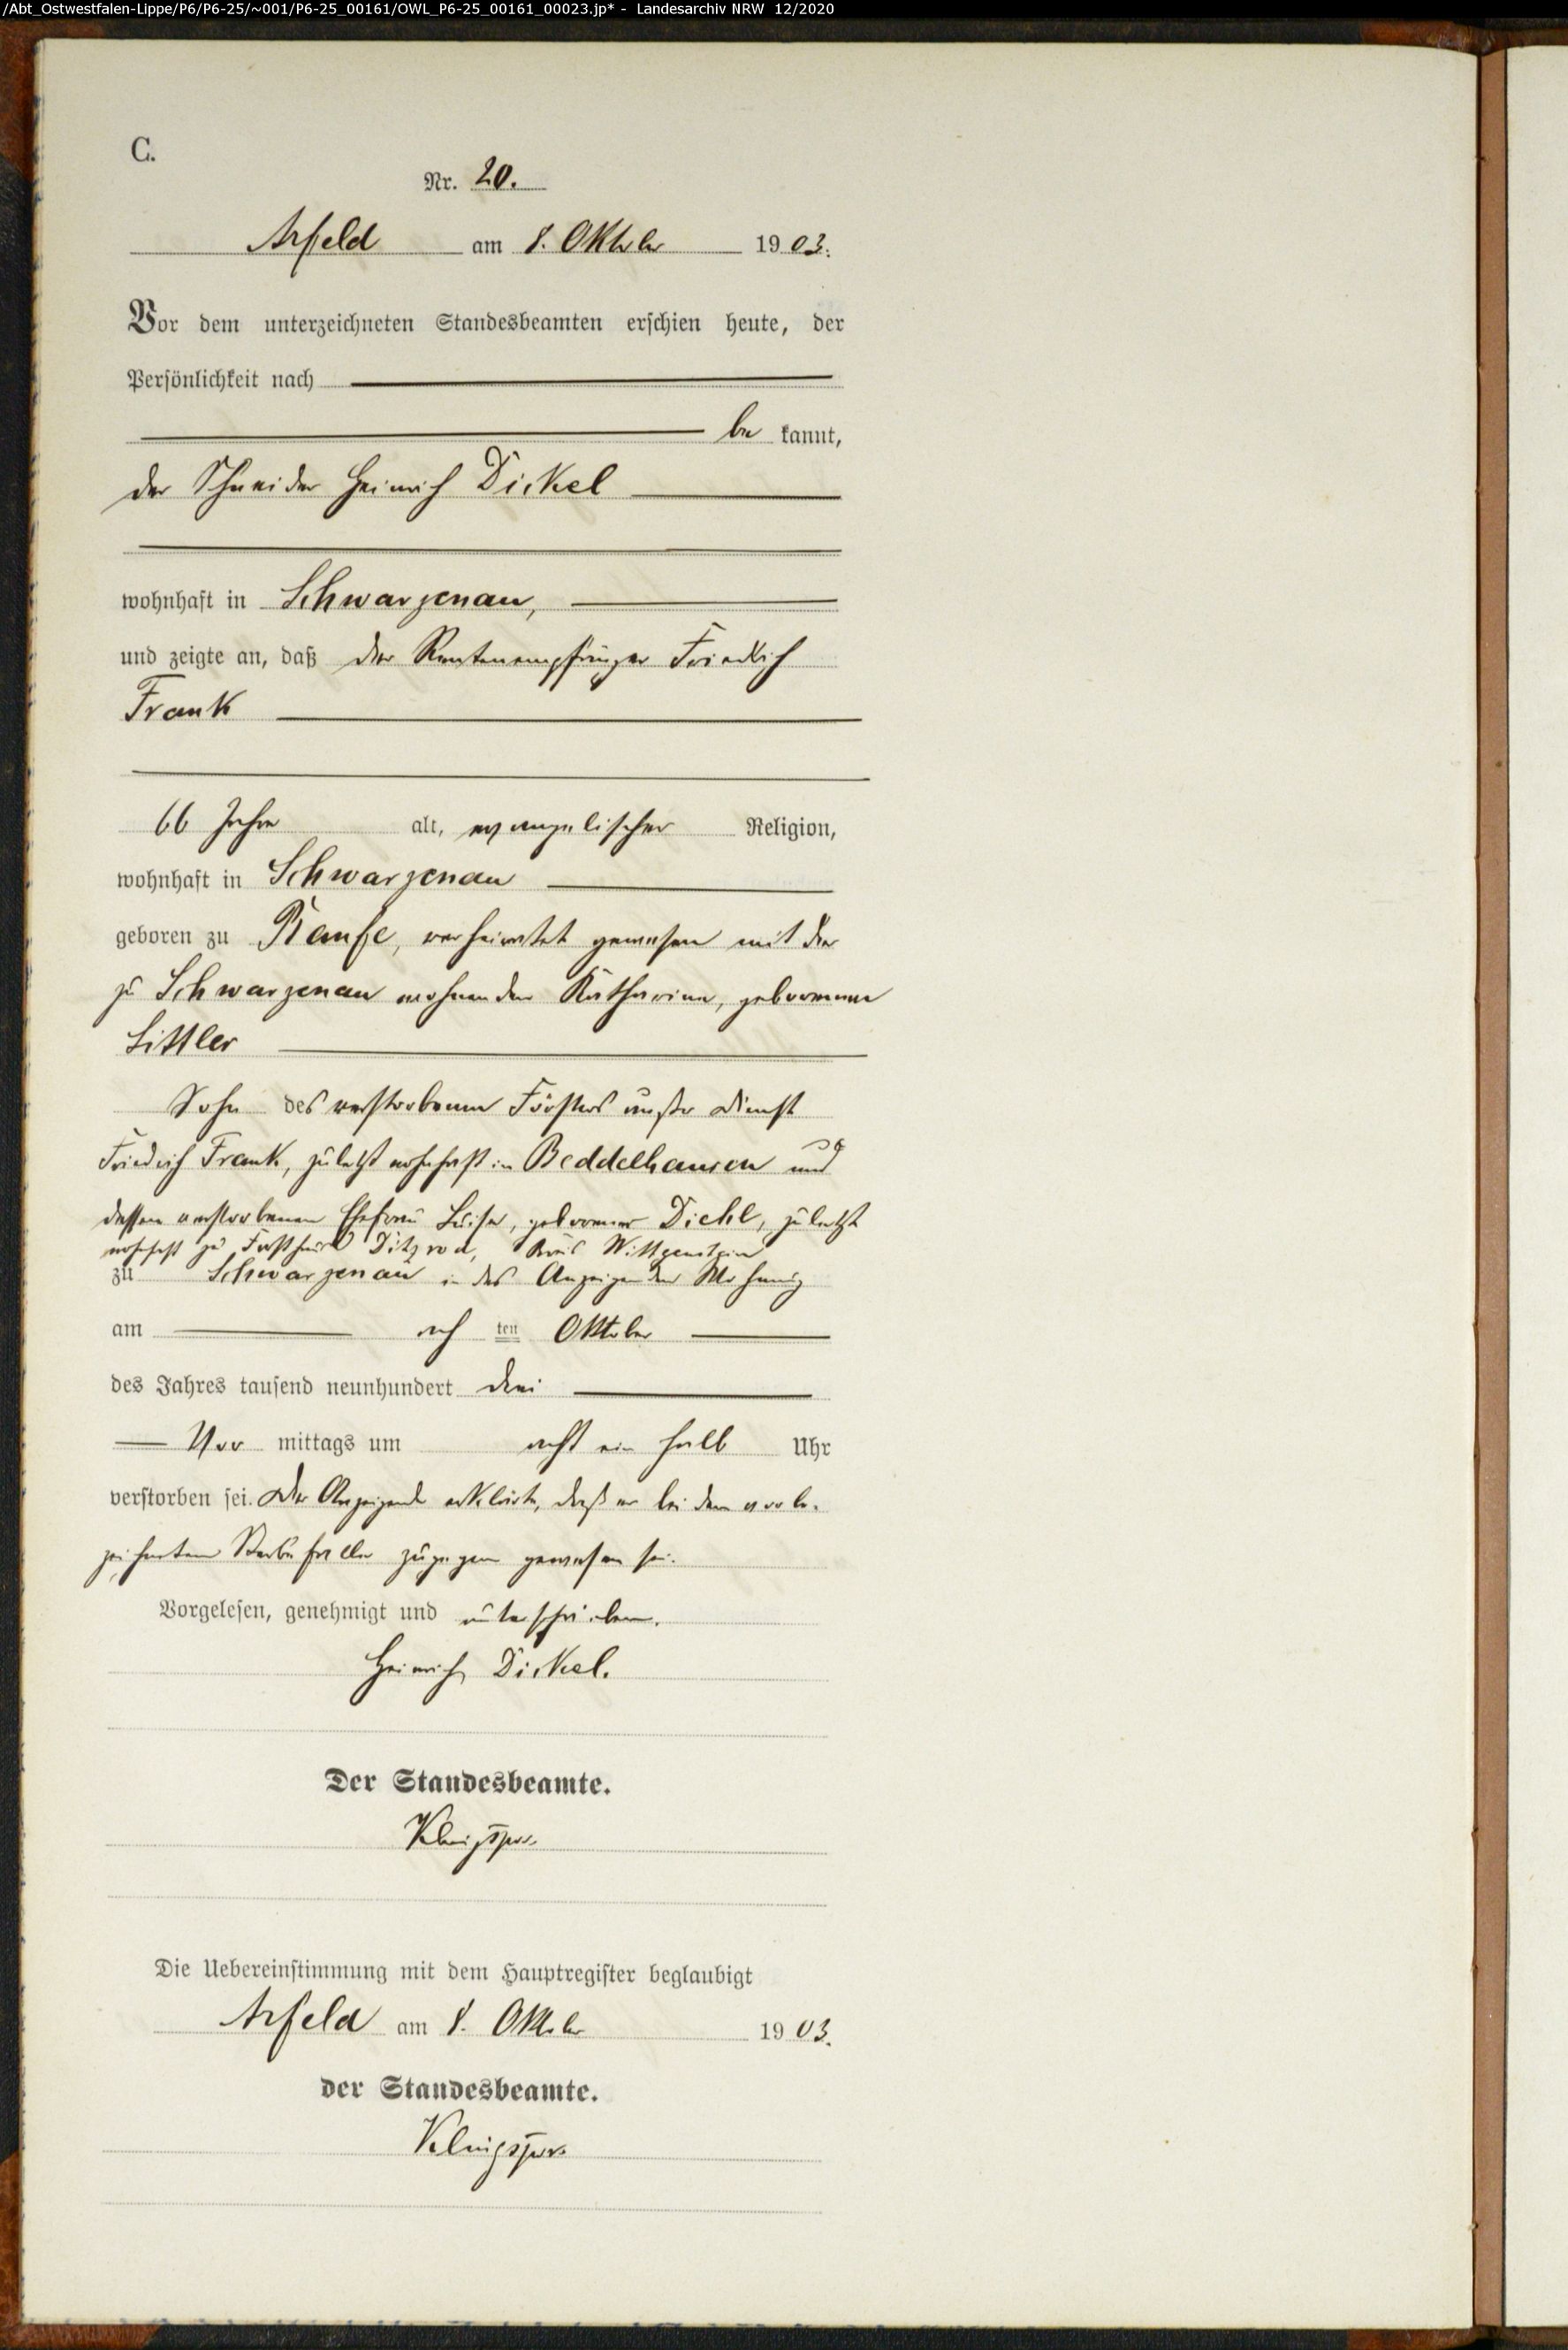 /Abt_Ostwestfalen-Lippe/P6/P6-25/~001/P6-25_00161/OWL_P6-25_00161_00023.jp* - Landesarchiv NRW 12/2020
C.
Nr. 20.
Arfeld am 8. Oktober 1903.
Vor dem unterzeichneten Standesbeamten erschien heute, der
Persönlichkeit nach
be kannt,
der Schneider Heinrich Dickel
wohnhaft in Schwarzenau,
und zeigte an, daß der Rentenempfänger Friedrich
Frank
66 Jahre alt, evangelischer Religion,
wohnhaft in Schwarzenau
geboren zu Banfe, verheiratet gewesen mit der
zu Schwarzenau wohnenden Katharina, geborenen
Sohn des verstorbenen Försters außer Dienst
Friedrich Frank, zuletzt wohnhaft in Beddelhausen und
dessen verstorbenen Ehefrau Luise, geborener Diehl, zuletzt
wohnhaft zu Forsthaus Ditzrod, Kreis Wittgenstein
zu Schwarzenau in des Anzeigenden Wohnung
am acht ten Oktober
des Jahres tausend neunhundert drei
Vor mittags um acht ein halb Uhr
verstorben sei. Der Anzeigende erklärte, daß er bei dem vorbe-
zeichneten Sterbefalle zugegen gewesen sei.
Vorgelesen, genehmigt und unterschrieben.
Heinrich Dickel.
Der Standesbeamte.
Klingspor.
Die Uebereinstimmung mit dem Hauptregister beglaubigt
Arfeld am 8. Oktober 1903.
der Standesbeamte.
Klingspor